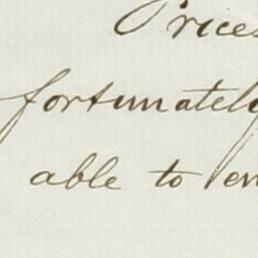 Prices
fortunately
able to